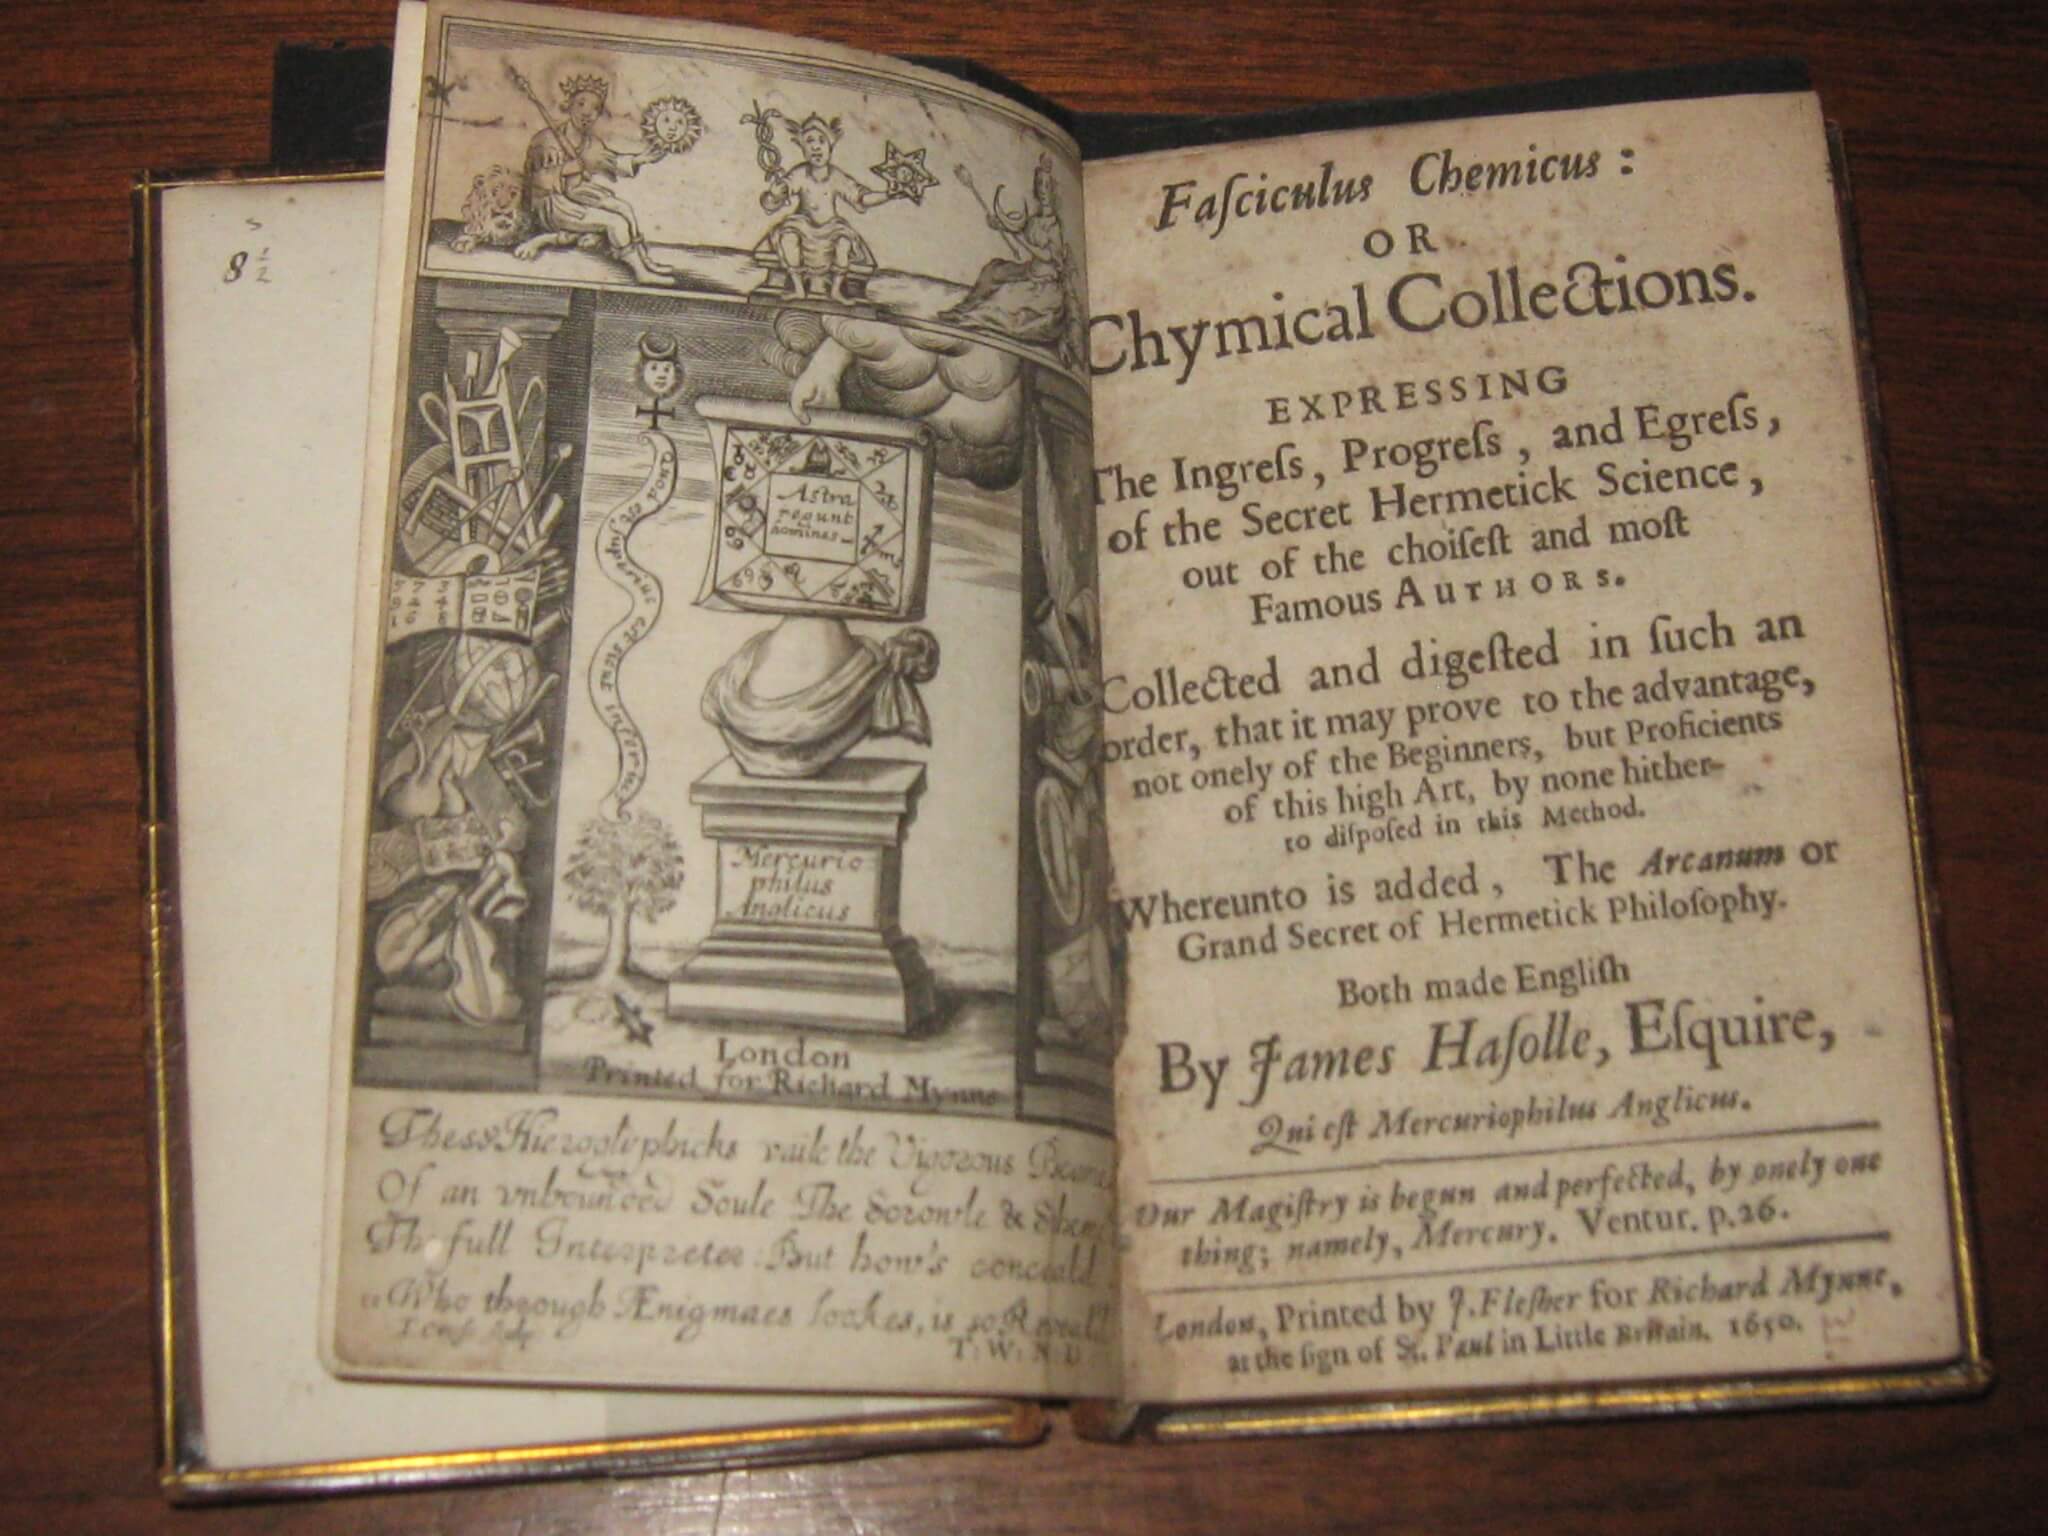 8 1/2
Astra
regunt
homines
Quod est superius est sicut inferius
Mercurio
philus
Anglicus
London
Printed for Richard Mynne
These Hieroglyphicks vaile the Vigorous
Of an vnbounded Soule The Scrowle &
The full Interpreter: But how's conceald
Who through Ænigmaes lookes, is so
T: W:
Faſciculus Chemicus:
OR
Chymical Collections.
EXPRESSING
The Ingreſs, Progreſs, and Egreſs,
of the Secret Hermetick Science,
out of the choiſeſt and moſt
Famous AUTHORS.
Collected and digeſted in ſuch an
order, that it may prove to the advantage,
not onely of the Beginners, but Proficients
of this high Art, by none hither-
to diſpoſed in this Method.
Whereunto is added, The Arcanum or
Grand Secret of Hermetick Philoſophy.
Both made Engliſh
By James Haſolle, Eſquire,
Qui eſt Mercuriophilus Anglicus.
Our Magiſtry is begun and perfected, by onely one
thing; namely, Mercury. Ventur. p.26.
London, Printed by J. Fleſher for Richard Mynne,
at the ſign of St. Paul in Little Britain. 1650.